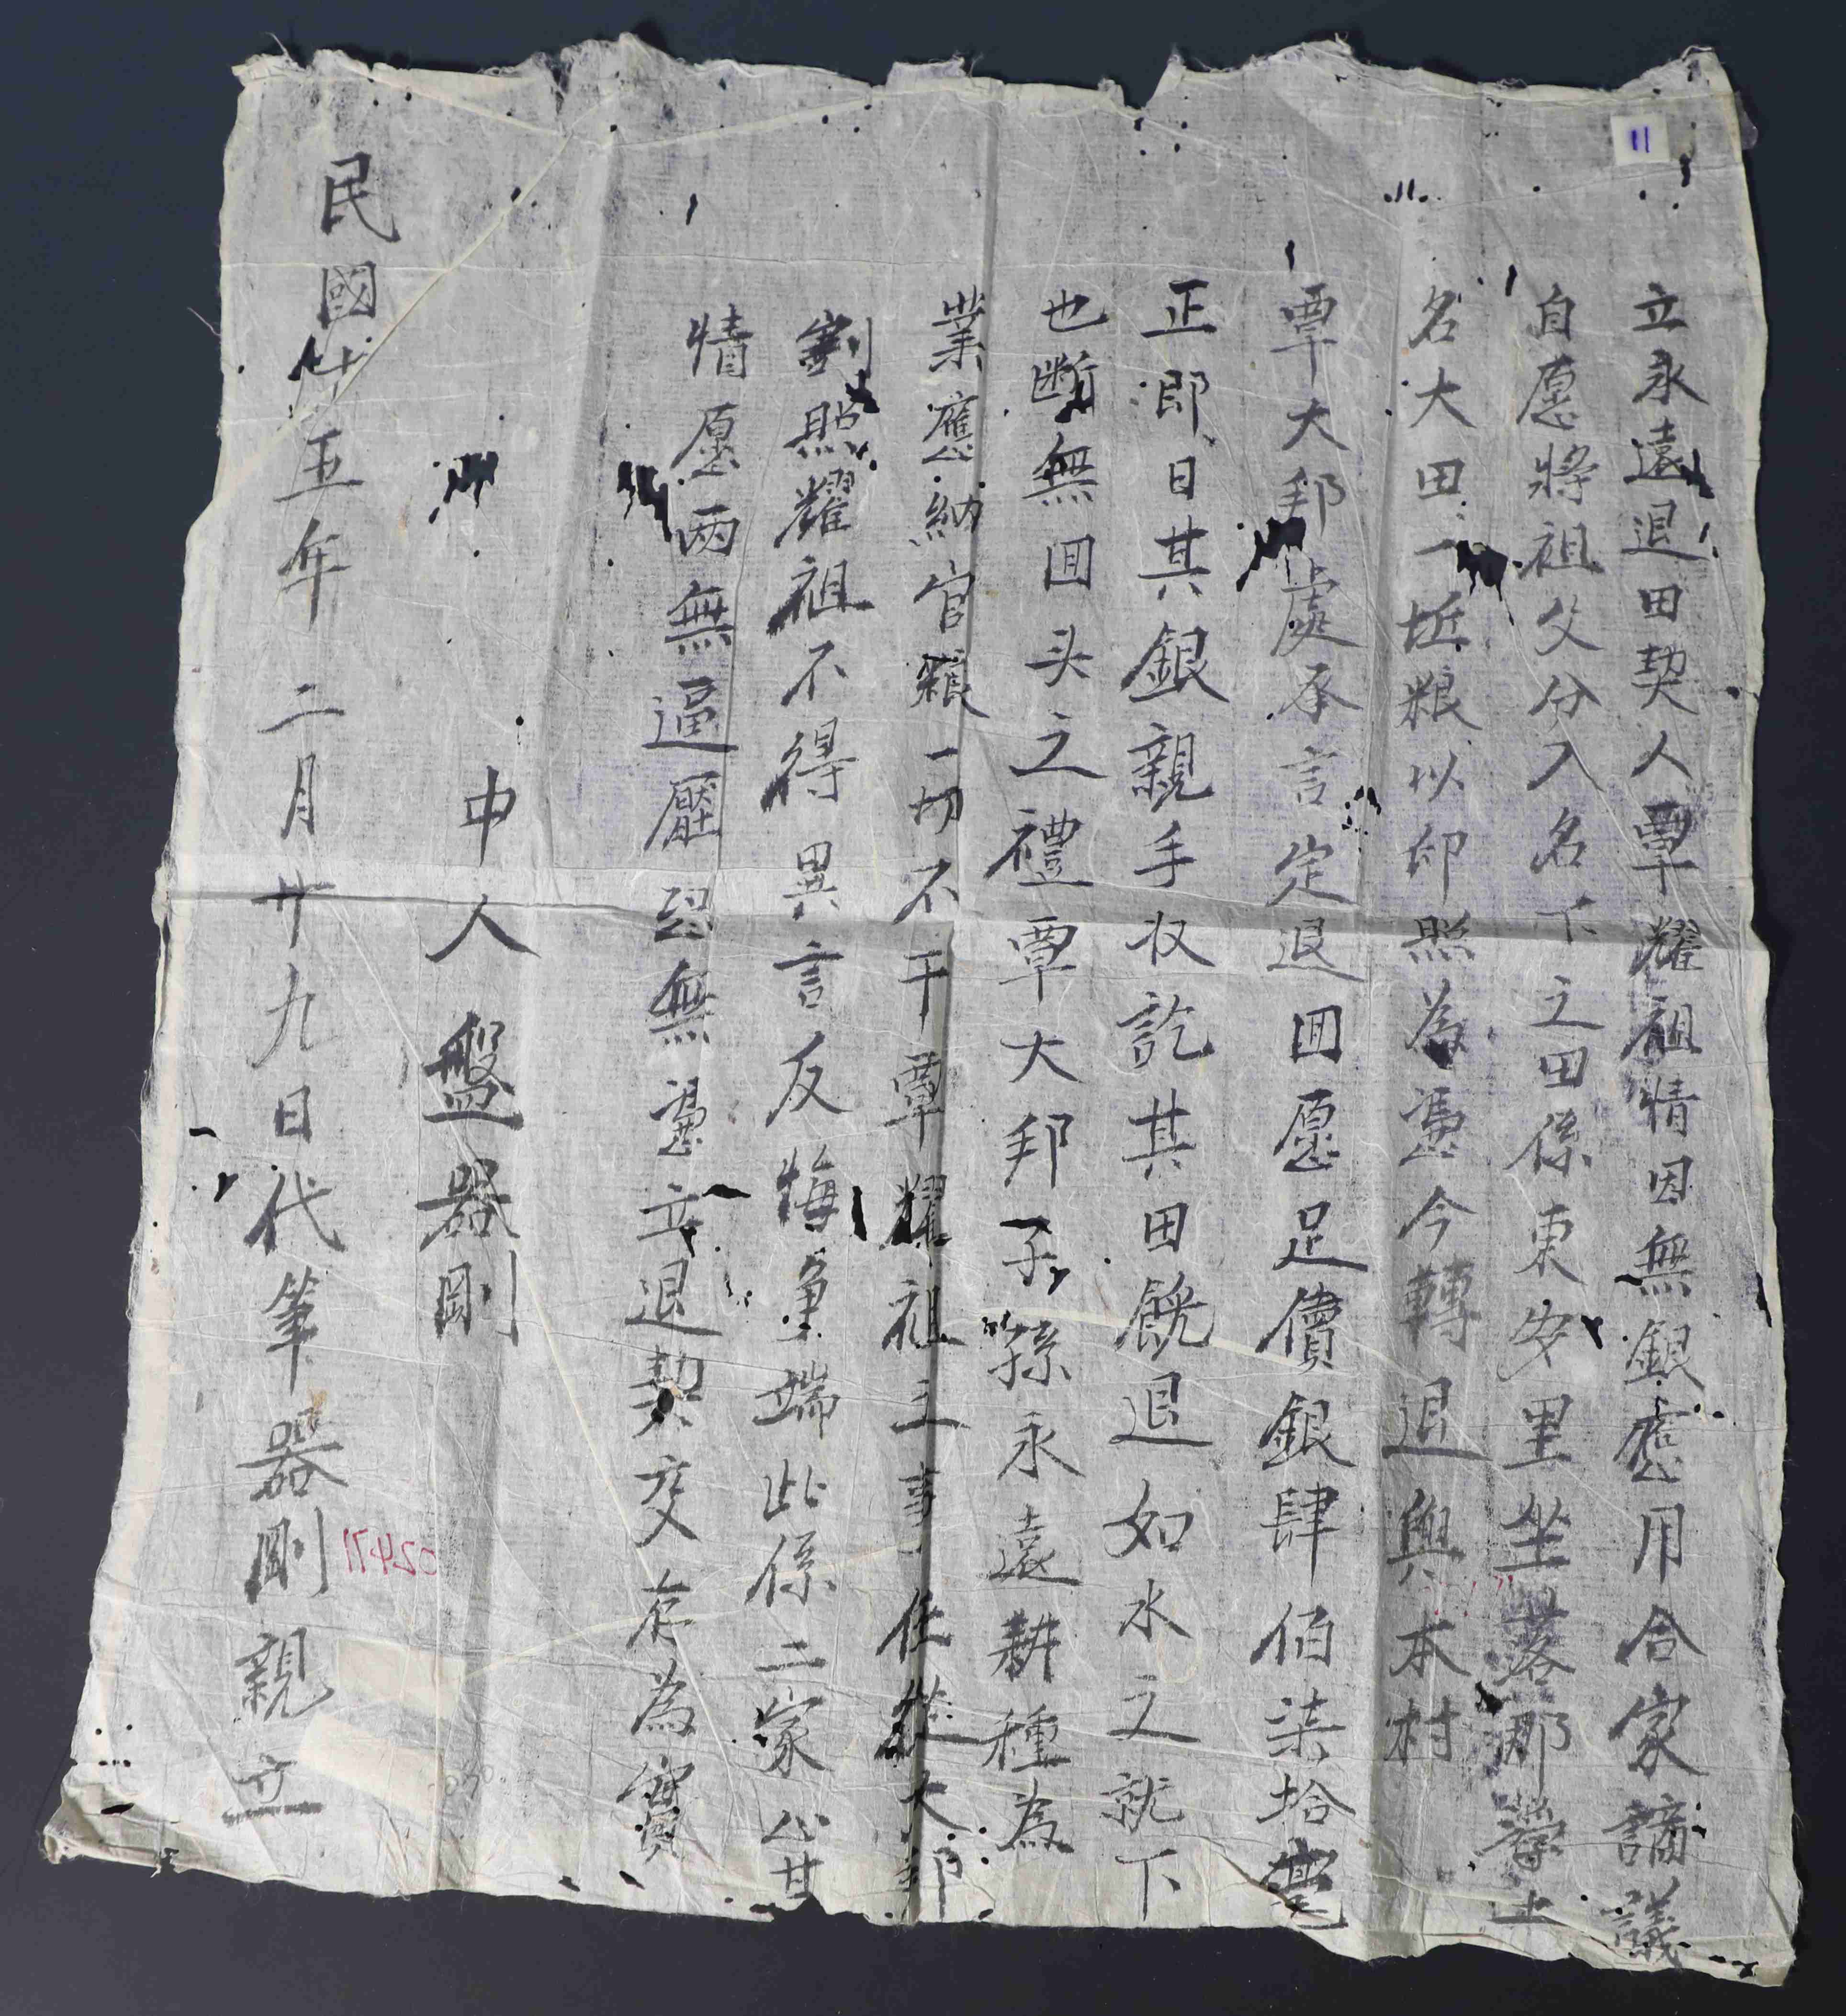 11
立永遠退田契人覃耀祖情因無銀應用合家謫議
自愿將祖父分入名下之田係東安里坐落那
名大田一坵粮以印照為憑今轉退與本村
覃大邦處承言定退回愿足價銀肆佰柒拾毫
正即日其銀親手收訖其田既退如水之就下
也斷無回头之禮覃大邦子孫永遠耕種為
業應納官粮一切不干覃耀祖之事任從大邦
割照耀祖不得異言反悔爭端此係二家心甘
情愿两無逼壓恐無憑立退契交存為實
中人 盤器剛
民國廿五年 二月廿九日代筆 器剛親立
02471